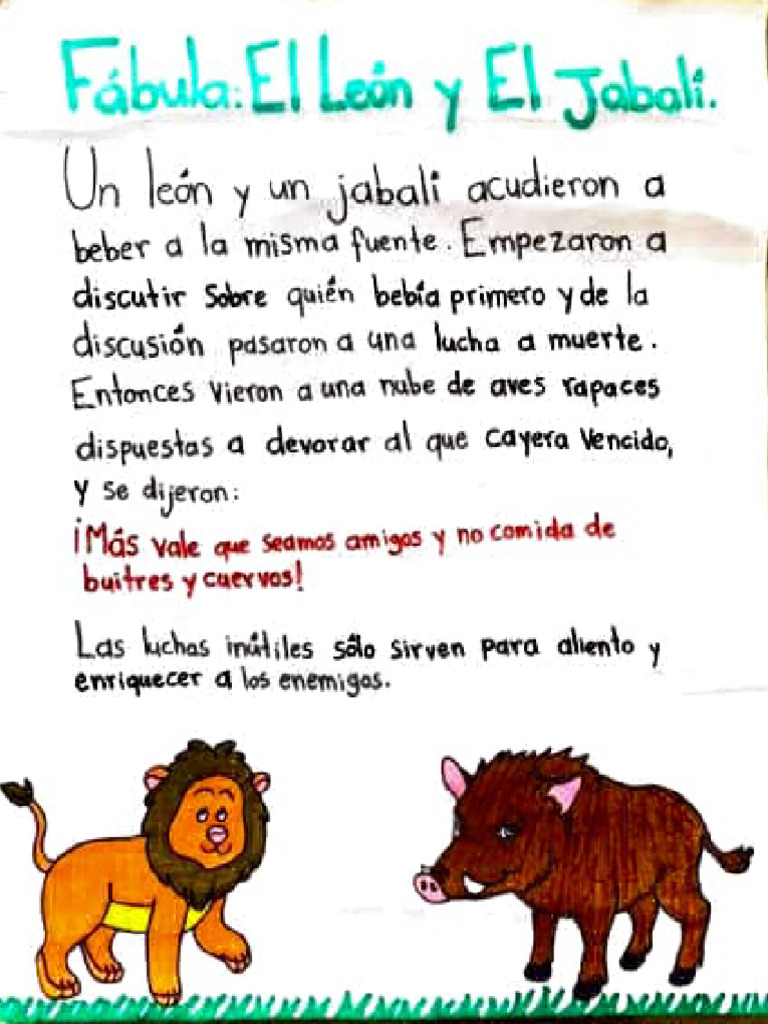 Fábula: El León y El Jabalí.
Un león y un jabalí acudieron a
beber a la misma fuente. Empezaron a
discutir sobre quién bebía primero y de la
discusión pasaron a una lucha a muerte.
Entonces vieron a una nube de aves rapaces
dispuestas a devorar al que cayera vencido,
y se dijeron:
¡Más vale que seamos amigos y no comida de
buitres y cuervos!
Las luchas inútiles sólo sirven para aliento y
enriquecer a los enemigos.